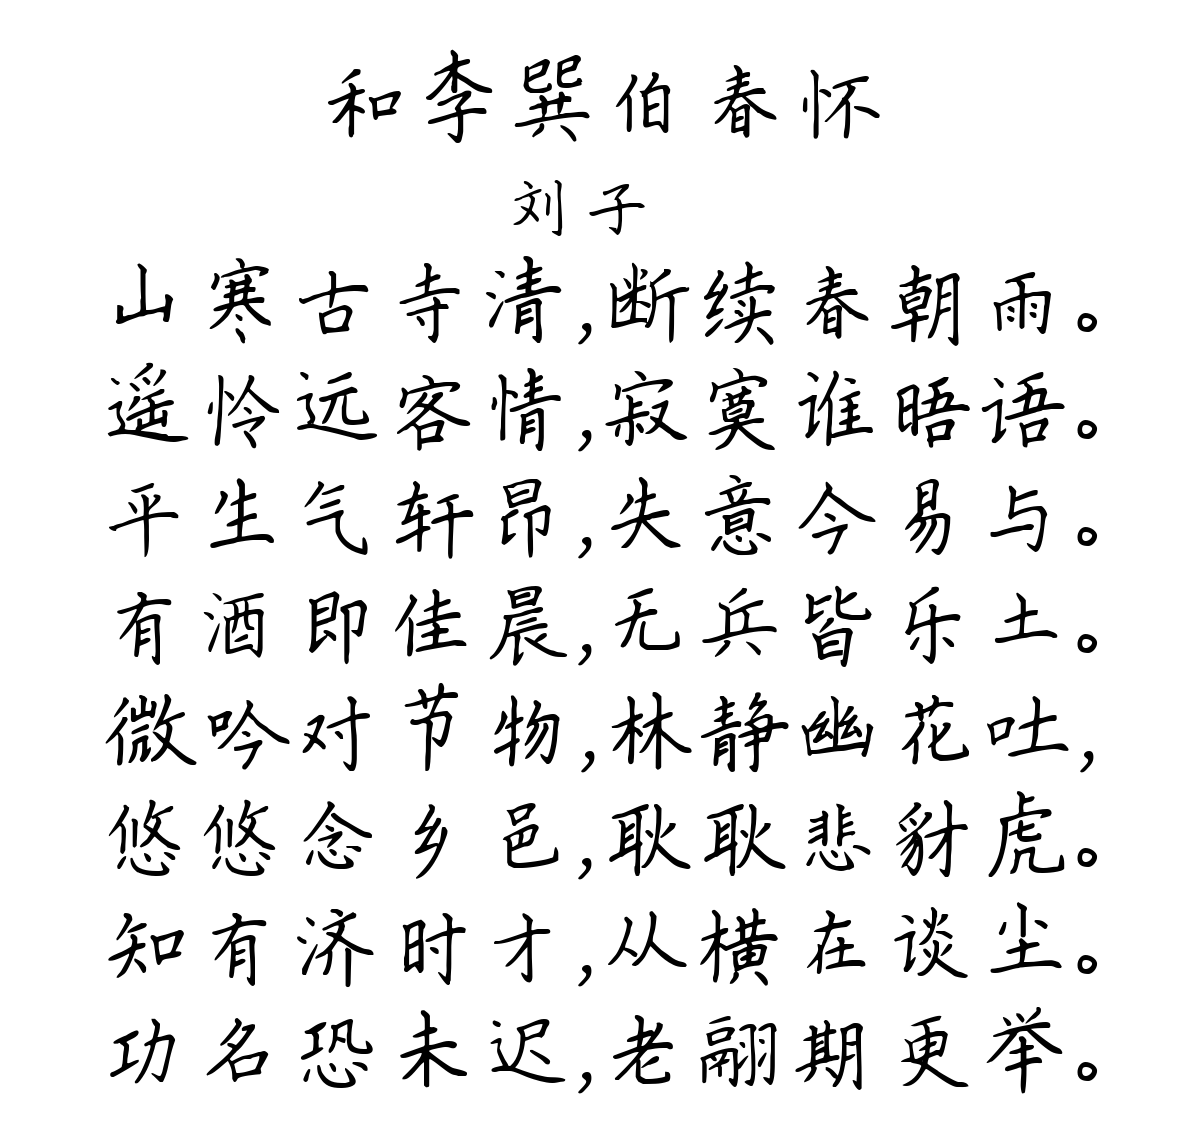 和李巽伯春怀
刘子
山寒古寺清,断续春朝雨。
遥怜远客情,寂寞谁晤语。
平生气轩昂,失意今易与。
有酒即佳晨,无兵皆乐土。
微吟对节物,林静幽花吐,
悠悠念乡邑,耿耿悲豺虎。
知有济时才,从横在谈尘。
功名恐未迟,老翮期更举。